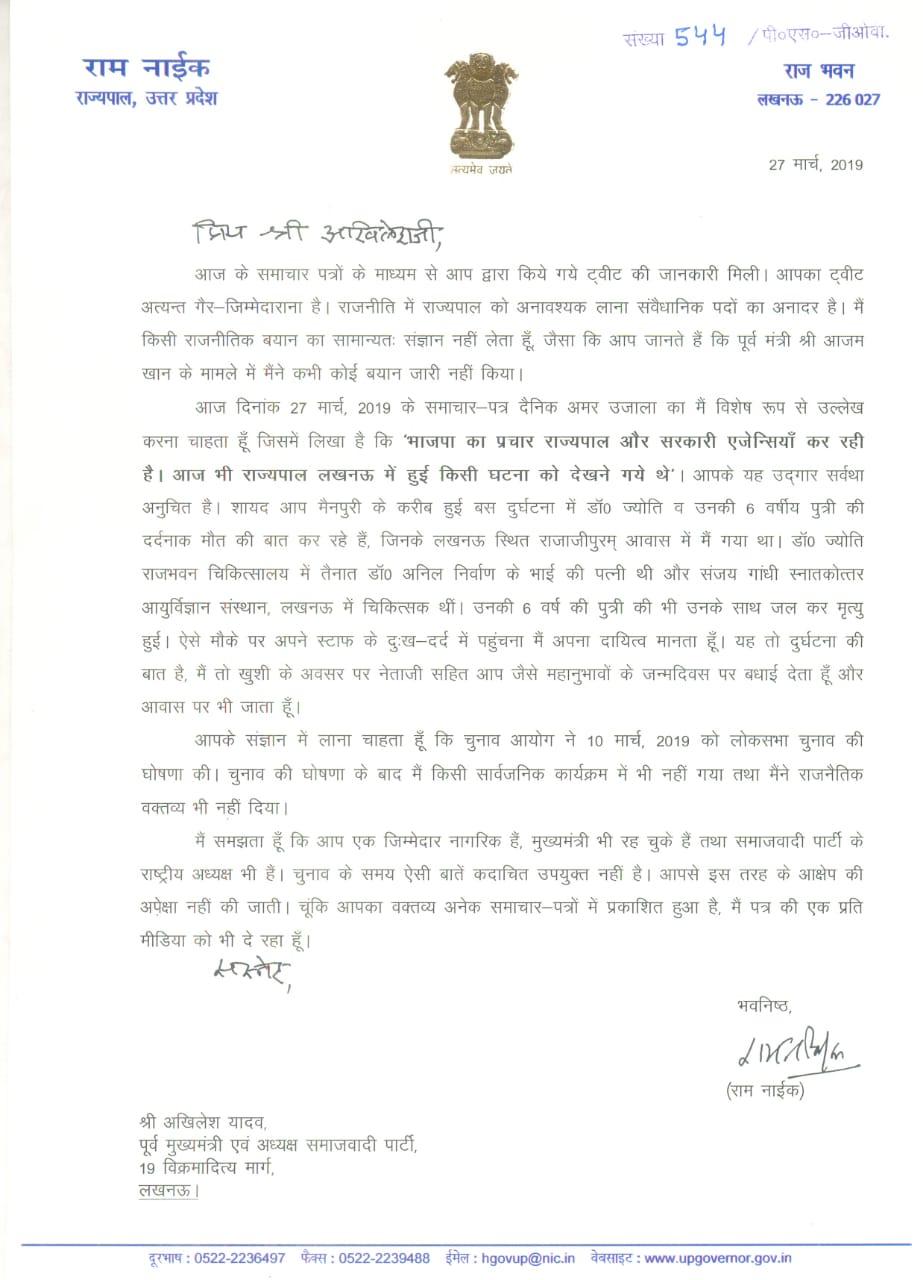 संख्या 544 /पी०एस०–जीओवा.
राम नाईक
राज्यपाल, उत्तर प्रदेश
सत्यमेव जयते
राज भवन
लखनऊ - 226 027
27 मार्च, 2019
प्रिय श्री अखिलेशजी,
आज के समाचार पत्रों के माध्यम से आप द्वारा किये गये ट्वीट की जानकारी मिली। आपका ट्वीट
अत्यन्त गैर–जिम्मेदाराना है। राजनीति में राज्यपाल को अनावश्यक लाना संवैधानिक पदों का अनादर है। मैं
किसी राजनीतिक बयान का सामान्यतः संज्ञान नहीं लेता हूँ, जैसा कि आप जानते हैं कि पूर्व मंत्री श्री आजम
खान के मामले में मैंने कभी कोई बयान जारी नहीं किया।
आज दिनांक 27 मार्च, 2019 के समाचार–पत्र दैनिक अमर उजाला का मैं विशेष रूप से उल्लेख
करना चाहता हूँ जिसमें लिखा है कि 'भाजपा का प्रचार राज्यपाल और सरकारी एजेन्सियाँ कर रही
है। आज भी राज्यपाल लखनऊ में हुई किसी घटना को देखने गये थे'। आपके यह उद्‌गार सर्वथा
अनुचित है। शायद आप मैनपुरी के करीब हुई बस दुर्घटना में डॉ0 ज्योति व उनकी 6 वर्षीय पुत्री की
दर्दनाक मौत की बात कर रहे हैं, जिनके लखनऊ स्थित राजाजीपुरम् आवास में मैं गया था। डॉ0 ज्योति
राजभवन चिकित्सालय में तैनात डॉ0 अनिल निर्वाण के भाई की पत्नी थी और संजय गांधी स्नातकोत्तर
आयुर्विज्ञान संस्थान, लखनऊ में चिकित्सक थीं। उनकी 6 वर्ष की पुत्री की भी उनके साथ जल कर मृत्यु
हुई। ऐसे मौके पर अपने स्टाफ के दुःख–दर्द में पहुंचना मैं अपना दायित्व मानता हूँ। यह तो दुर्घटना की
बात है, मैं तो खुशी के अवसर पर नेताजी सहित आप जैसे महानुभावों के जन्मदिवस पर बधाई देता हूँ और
आवास पर भी जाता हूँ।
आपके संज्ञान में लाना चाहता हूँ कि चुनाव आयोग ने 10 मार्च, 2019 को लोकसभा चुनाव की
घोषणा की। चुनाव की घोषणा के बाद मैं किसी सार्वजनिक कार्यक्रम में भी नहीं गया तथा मैंने राजनैतिक
वक्तव्य भी नहीं दिया।
मैं समझता हूँ कि आप एक जिम्मेदार नागरिक हैं, मुख्यमंत्री भी रह चुके हैं तथा समाजवादी पार्टी के
राष्ट्रीय अध्यक्ष भी हैं। चुनाव के समय ऐसी बातें कदाचित उपयुक्त नहीं है। आपसे इस तरह के आक्षेप की
अपेक्षा नहीं की जाती। चूंकि आपका वक्तव्य अनेक समाचार–पत्रों में प्रकाशित हुआ है, मैं पत्र की एक प्रति
मीडिया को भी दे रहा हूँ।
सस्नेह,
भवनिष्ठ,
राम नाईक
(राम नाईक)
श्री अखिलेश यादव,
पूर्व मुख्यमंत्री एवं अध्यक्ष समाजवादी पार्टी,
19 विक्रमादित्य मार्ग,
लखनऊ।
दूरभाष : 0522-2236497 फैक्स : 0522-2239488 ईमेल : hgovup@nic.in वेबसाइट : www.upgovernor.gov.in